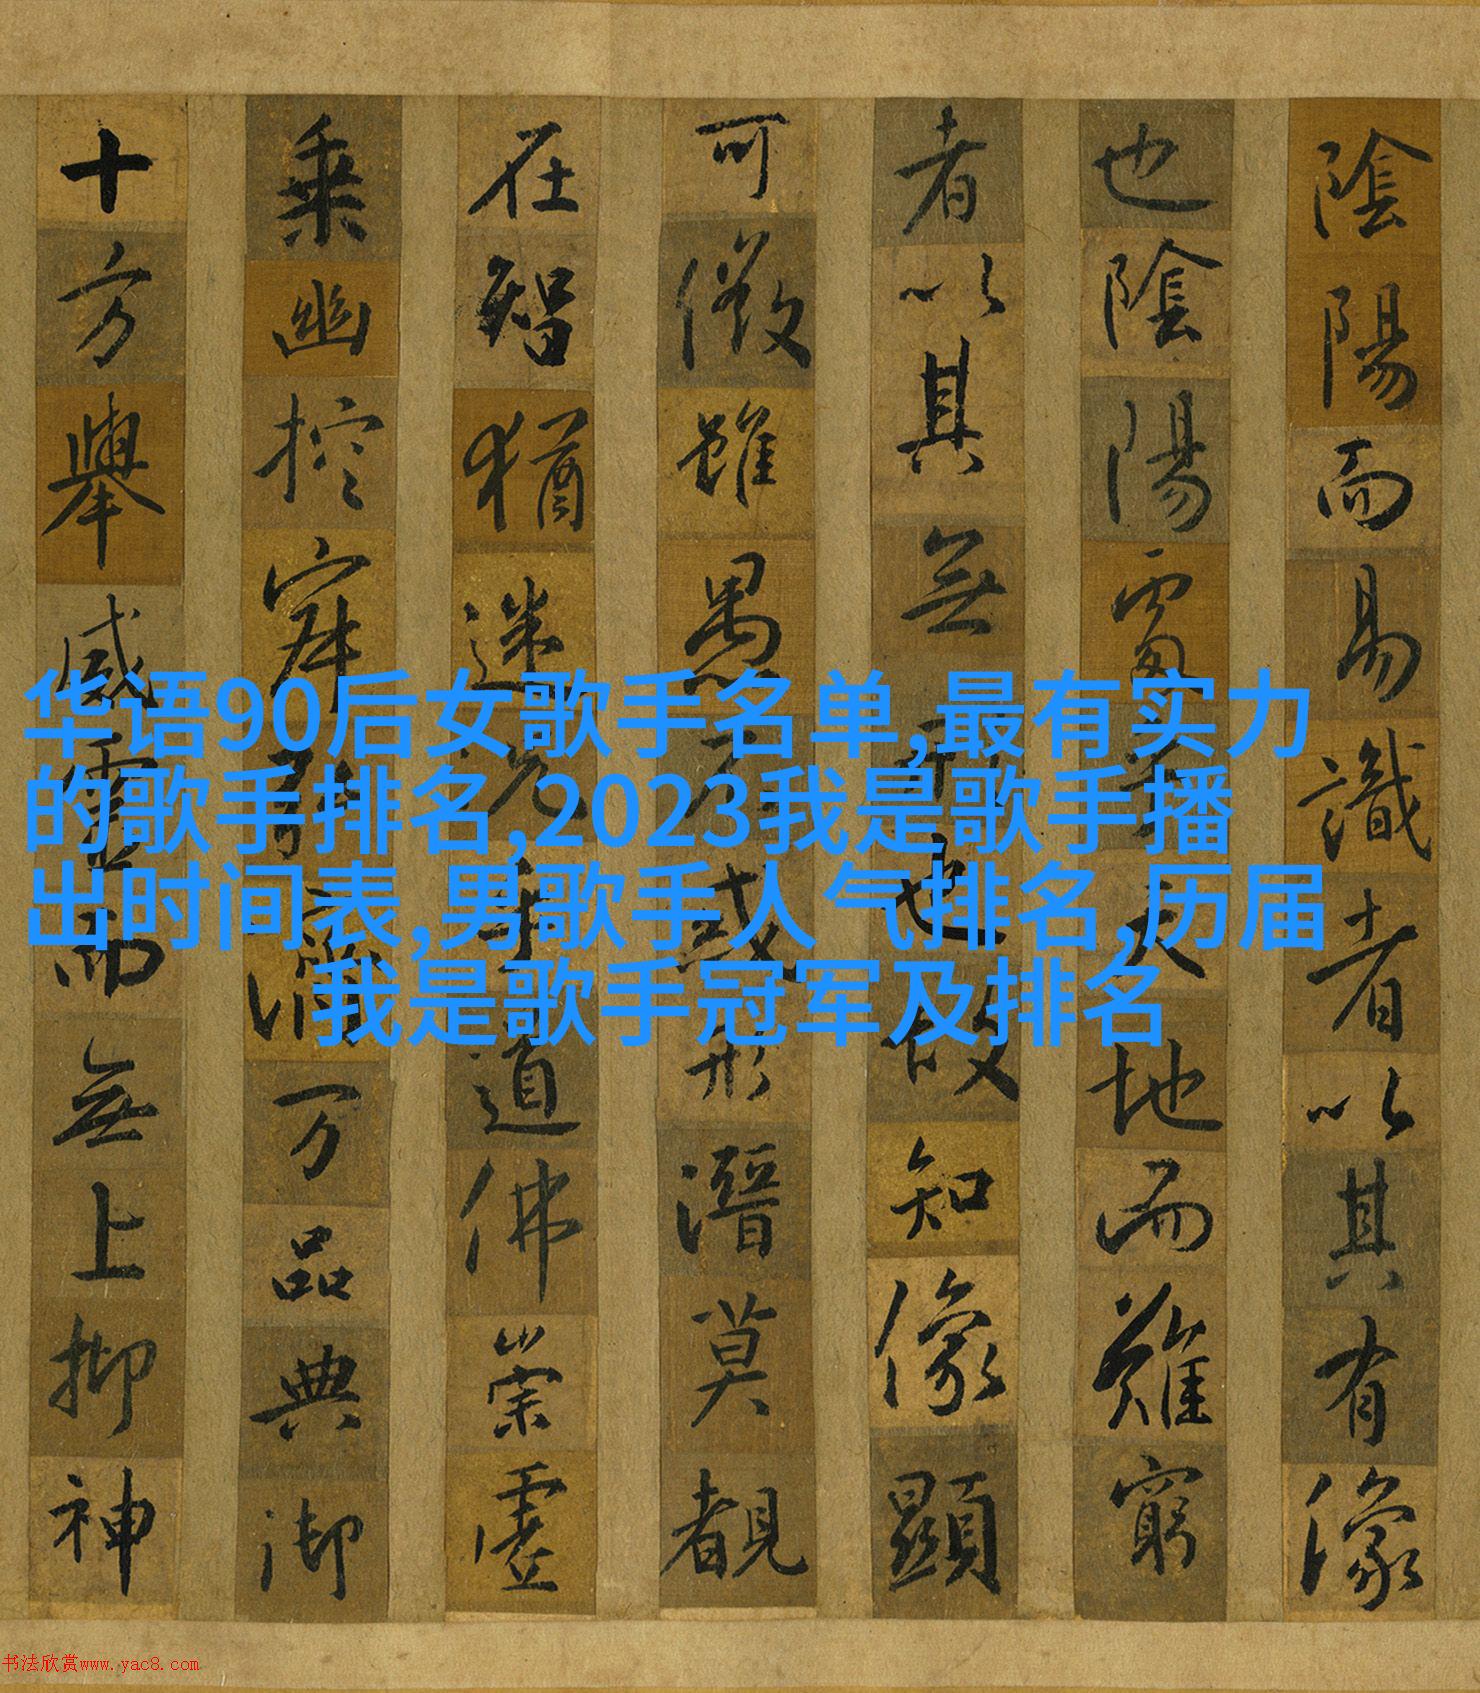 陰陽而易識者以其有像
也陰陽處乎天地而難窮
者以其無形也故知像顯
可徵雖愚不惑形潛莫覩
在智猶迷況乎道佛崇虛
乗幽控寂弘濟万品典御
十方舉威靈而無上抑神
华语90后女歌手名单,最有实力
的歌手排名,2023我是歌手播
出时间表,男歌手人气排名,历届
我是歌手冠军及排名
书法欣赏www.yac8.com